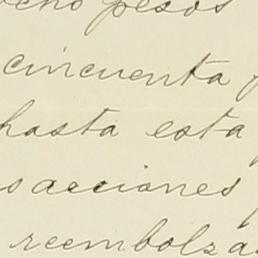 ocho pesos
cincuenta
hasta esta
s acciones
reembolza